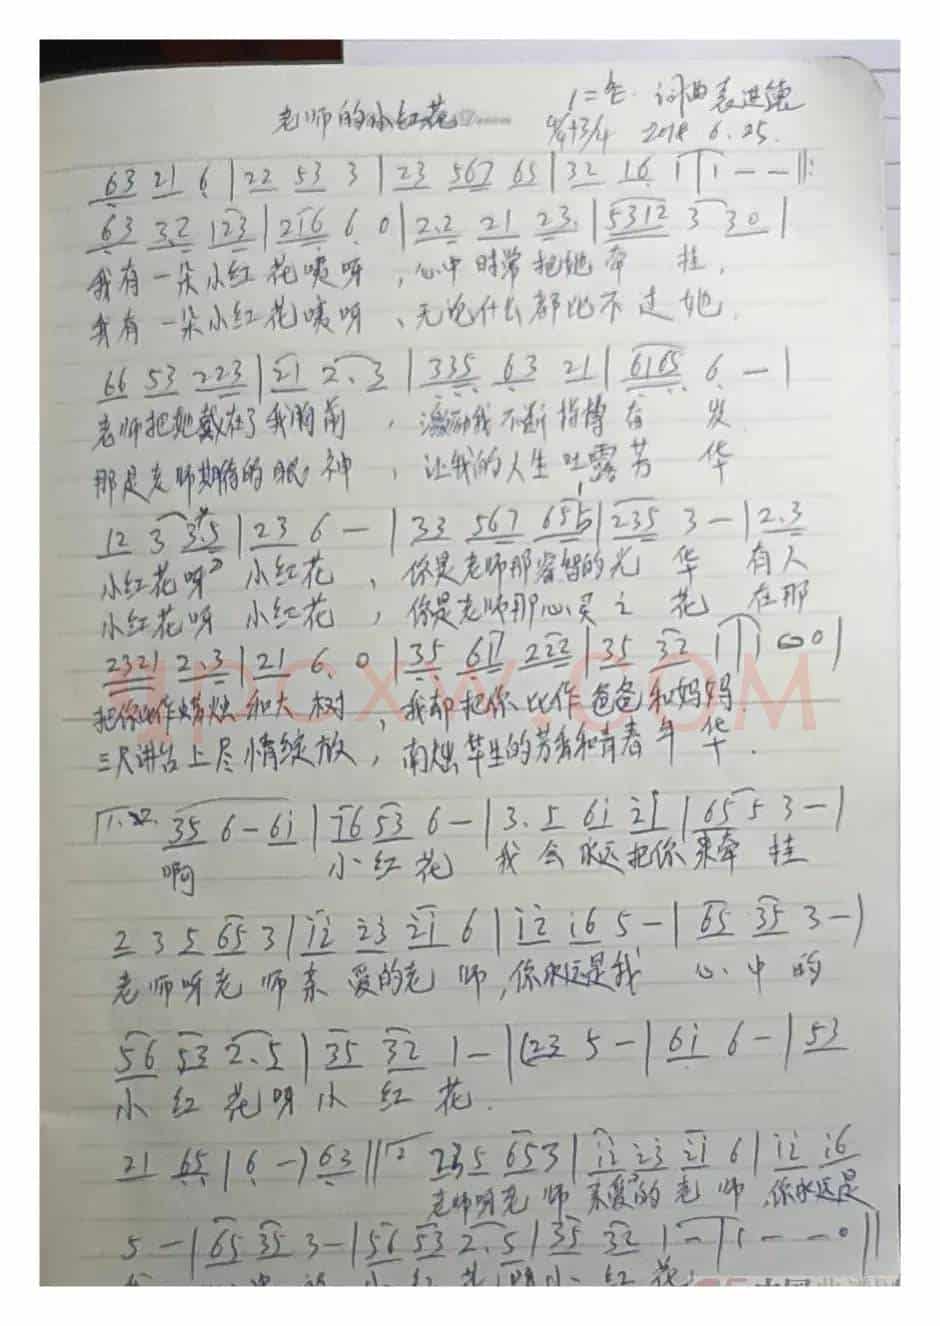 老师的小红花
词曲 袁进德
4/4+3/4 2018 6.25.
63 21 6 | 22 53 3 | 23 567 65 | 32 16 1 | 1 - - ‖:
63 32 123 | 216 6 0 | 2.2 21 23. | 5312 3 30 |
我有一朵小红花咦呀,心中时常把她牵 挂,
我有一朵小红花咦呀、无论什么都比不过她.
66 53 223 | 21 2.3 | 335 63 21 | 6165 6 - |
老师把她戴在了我胸前,激励我不断 奋 发
那是老师期待的眼神,让我的人生吐露芳 华
12 3 3.5 | 23 6 - | 33 567 65 | 235 3 - | 2.3
小红花呀 小红花,你是老师那睿智的光 华 有人
小红花呀 小红花,你是老师那心灵之 花 在那
2321 2.3 | 21 6 0 | 35 61 222 | 35 32 1 | 1 0 0 |
把你比作蜡烛和大树,我却把你比作爸爸和妈妈
三尺讲台上尽情绽放,毕生的芳香和青春年华.
1.2. 35 6 - 6i | i6 53 6 - | 3. 5 6i 2i | 65 5 3 - |
啊 小红花 我会永远把你来牵 挂
2 3 5 65 3 | i2 23 2i 6 | i2 i6 5 - | 65 35 3 - |
老师呀老师亲爱的老师,你永远是我 心中的
56 53 2.5 | 35 32 1 - | (23 5 - | 6i 6 - | 53
小红花呀小红花.
21 65 | 6 -) 63 ‖ 2 235 653 | i2 23 2i 6 | i2 i6
老师呀老师亲爱的老师 你永远是
5 - | 65 35 3 - | 56 53 2.5 | 35 32 1 - | 1 - - 0 ‖
小红花呀小红花
PCXW.COM